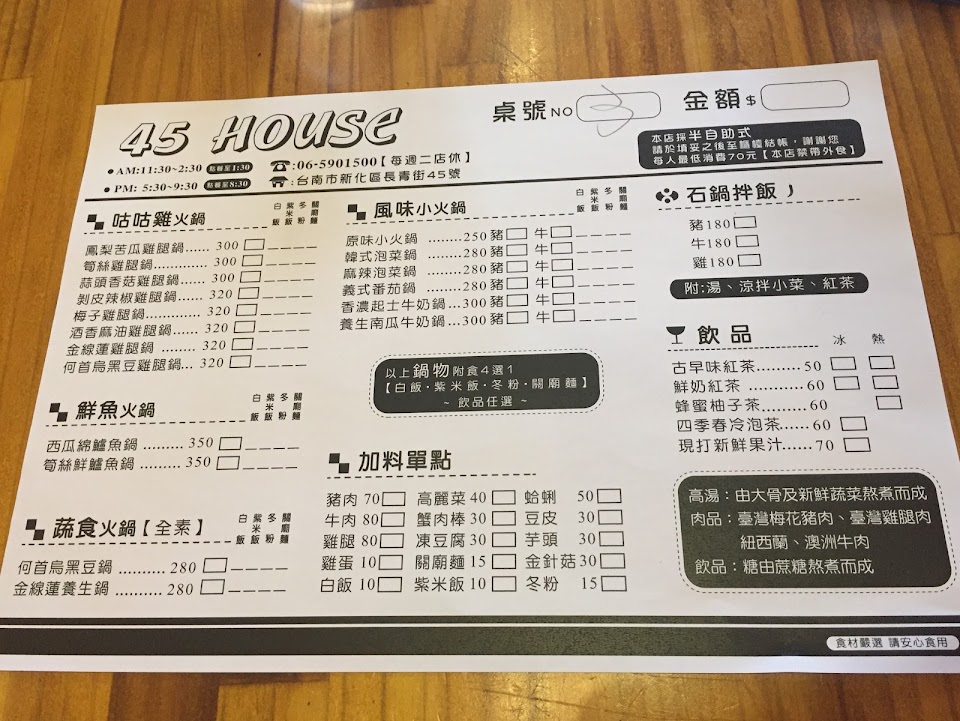 45 HOUSE
桌號NO 3 金額$
本店採半自助式
請於填妥之後至櫃檯結帳，謝謝您
每人最低消費70元【本店禁帶外食】
●AM:11:30~2:30 點餐至1:30
●PM: 5:30~9:30 點餐至8:30
☎:06-5901500【每週二店休】
:台南市新化區長青街45號
咕咕雞火鍋 白飯 紫米飯 冬粉 關廟麵
鳳梨苦瓜雞腿鍋...... 300
筍絲雞腿鍋............. 300
蒜頭香菇雞腿鍋...... 300
剝皮辣椒雞腿鍋...... 320
梅子雞腿鍋............. 320
酒香麻油雞腿鍋...... 320
金線蓮雞腿鍋 ......... 320
何首烏黑豆雞腿鍋... 320
鮮魚火鍋 白飯 紫米飯 冬粉 關廟麵
西瓜綿鱸魚鍋 ......... 350
筍絲鮮鱸魚鍋 ......... 350
蔬食火鍋【全素】 白飯 紫米飯 冬粉 關廟麵
何首烏黑豆鍋 .......... 280
金線蓮養生鍋 .......... 280
風味小火鍋 白飯 紫米飯 冬粉 關廟麵
原味小火鍋 ........250 豬 牛
韓式泡菜鍋 ........280 豬 牛
麻辣泡菜鍋 ........280 豬 牛
義式番茄鍋 ........280 豬 牛
香濃起士牛奶鍋...300 豬 牛
養生南瓜牛奶鍋...300 豬 牛
以上鍋物附食4選1
【白飯・紫米飯・冬粉・關廟麵】
~ 飲品任選 ~
加料單點
豬肉 70 高麗菜 40 蛤蜊 50
牛肉 80 蟹肉棒 30 豆皮 30
雞腿 80 凍豆腐 30 芋頭 30
雞蛋 10 關廟麵 15 金針菇 30
白飯 10 紫米飯 10 冬粉 15
石鍋拌飯
豬180
牛180
雞180
附:湯、涼拌小菜、紅茶
飲品 冰 熱
古早味紅茶.........50
鮮奶紅茶 ..........60
蜂蜜柚子茶.........60
四季春冷泡茶......60
現打新鮮果汁......70
高湯：由大骨及新鮮蔬菜熬煮而成
肉品：臺灣梅花豬肉、臺灣雞腿肉
紐西蘭、澳洲牛肉
飲品：糖由蔗糖熬煮而成
食材嚴選 請安心食用